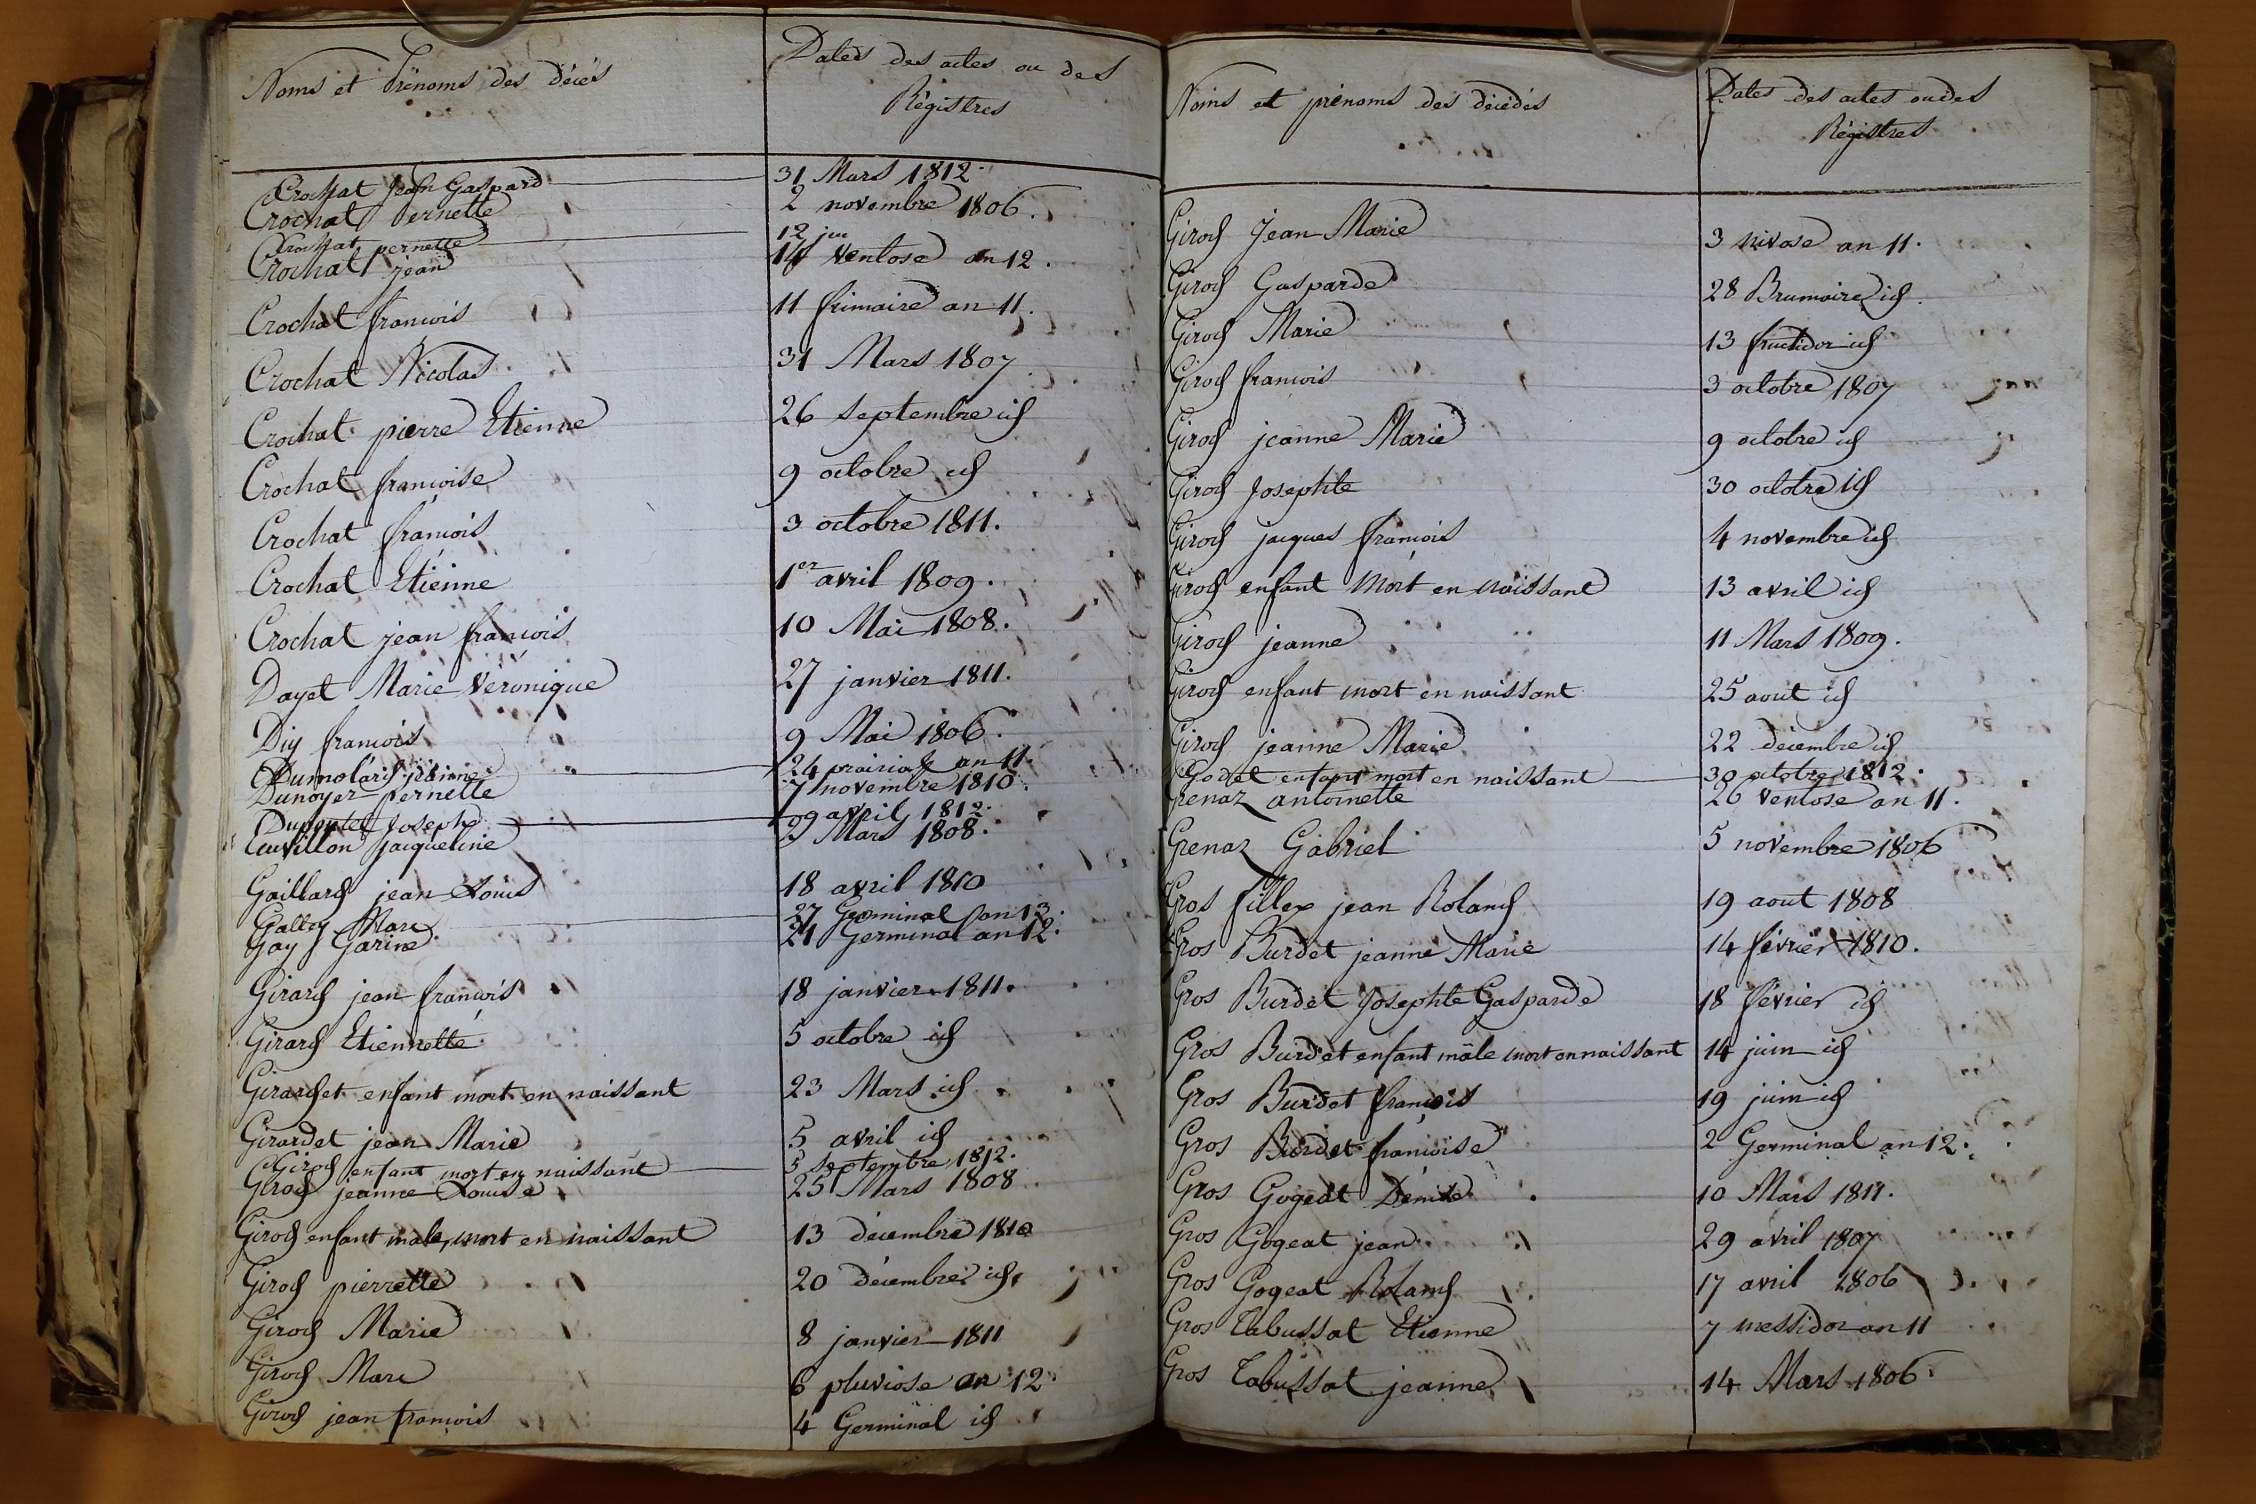 Noms et Prénoms des décés
Dates des actes ou des
Régistres
Crochat Jean Gaspard 31 Mars 1812.
Crochat Pernette 2 novembre 1806.
Crochat pernette 12
Crochat jean 14 ventose an 12.
Crochat francois 11 frimaire an 11.
Crochat Nicolas 31 Mars 1807
Crochat pierre Etienne 26 septembre id
Crochat francoise 9 octobre id
Crochat francois 3 octobre 1811.
Crochat Etienne 1er avril 1809.
Crochat jean francois 10 Mai 1808.
Dayet Marie Véronique 27 janvier 1811.
Diy francois 9 Mai 1806.
Dumolard 24 prairial an 11.
Dunoyer pernette 7 novembre 1810.
Dupontet Joseph 29 avril 1812.
Cuvillon jacqueline 9 Mars 1808.
Gaillard jean Louis 18 avril 1810
Gallay Marc 27 Germinal an 13.
Gay Garine 21 Germinal an 12.
Girard jean francois 18 janvier 1811.
Girard Etiennette 5 octobre id
Girardet enfant mort en naissant 23 Mars id
Girardet jean Marie 5 avril id
Girod enfant mort en naissant 5 septembre 1812.
Girod jeanne Louise 25 Mars 1808
Girod enfant male, mort en naissant 13 décembre 1810
Girod pierrette 20 décembre id
Girod Marie 8 janvier 1811
Girod Marc 6 pluviose an 12
Girod jean francois 4 Germinal id
Noms et prénoms des décédés
Dates des actes ou des
Régistres
Girod Jean Marie 3 nivose an 11.
Girod Gasparde 28 Brumaire id.
Girod Marie 13 fructidor id
Girod francois 3 octobre 1807
Girod jeanne Marie 9 octobre id
Girod Josephte 30 octobre id
Girod jacques francois 4 novembre id
Girod enfant Mort en naissant 13 avril id
Girod jeanne 11 Mars 1809.
Girod enfant mort en naissant 25 aout id
Girod jeanne Marie 22 décembre id
Godet enfant mort en naissant 30 octobre 1812.
Grenaz antoinette 26 ventose an 11.
Grenaz Gabriel 5 novembre 1806
Gros fillex jean Roland 19 aout 1808
Gros Burdet jeanne Marie 14 février 1810.
Gros Burdet Josephte Gasparde 18 février id
Gros Burdet enfant mâle mort en naissant 14 juin id
Gros Burdet francois 19 juin id
Gros Burdet francoise 2 Germinal an 12.
Gros Gogeat Denise 10 Mars 1811.
Gros Gogeat jean 29 avril 1807
Gros Gogeat Roland 17 avril 1806
Gros Tabussat Etienne 7 messidor an 11
Gros Tabussat jeanne 14 Mars 1806.